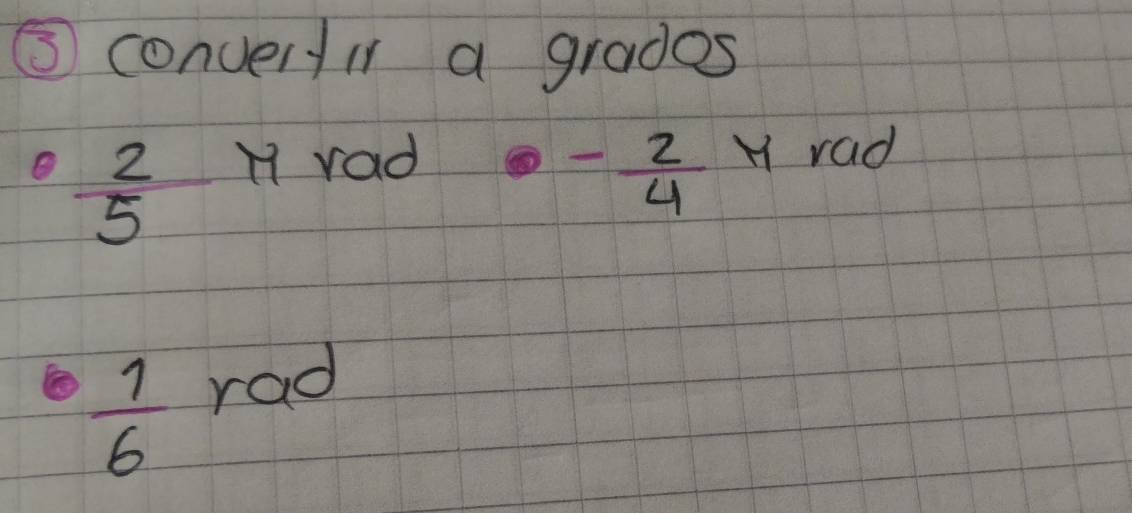 ③ convertir a grados
• 2/5 π rad • - 2/4 π rad
• 1/6 rad